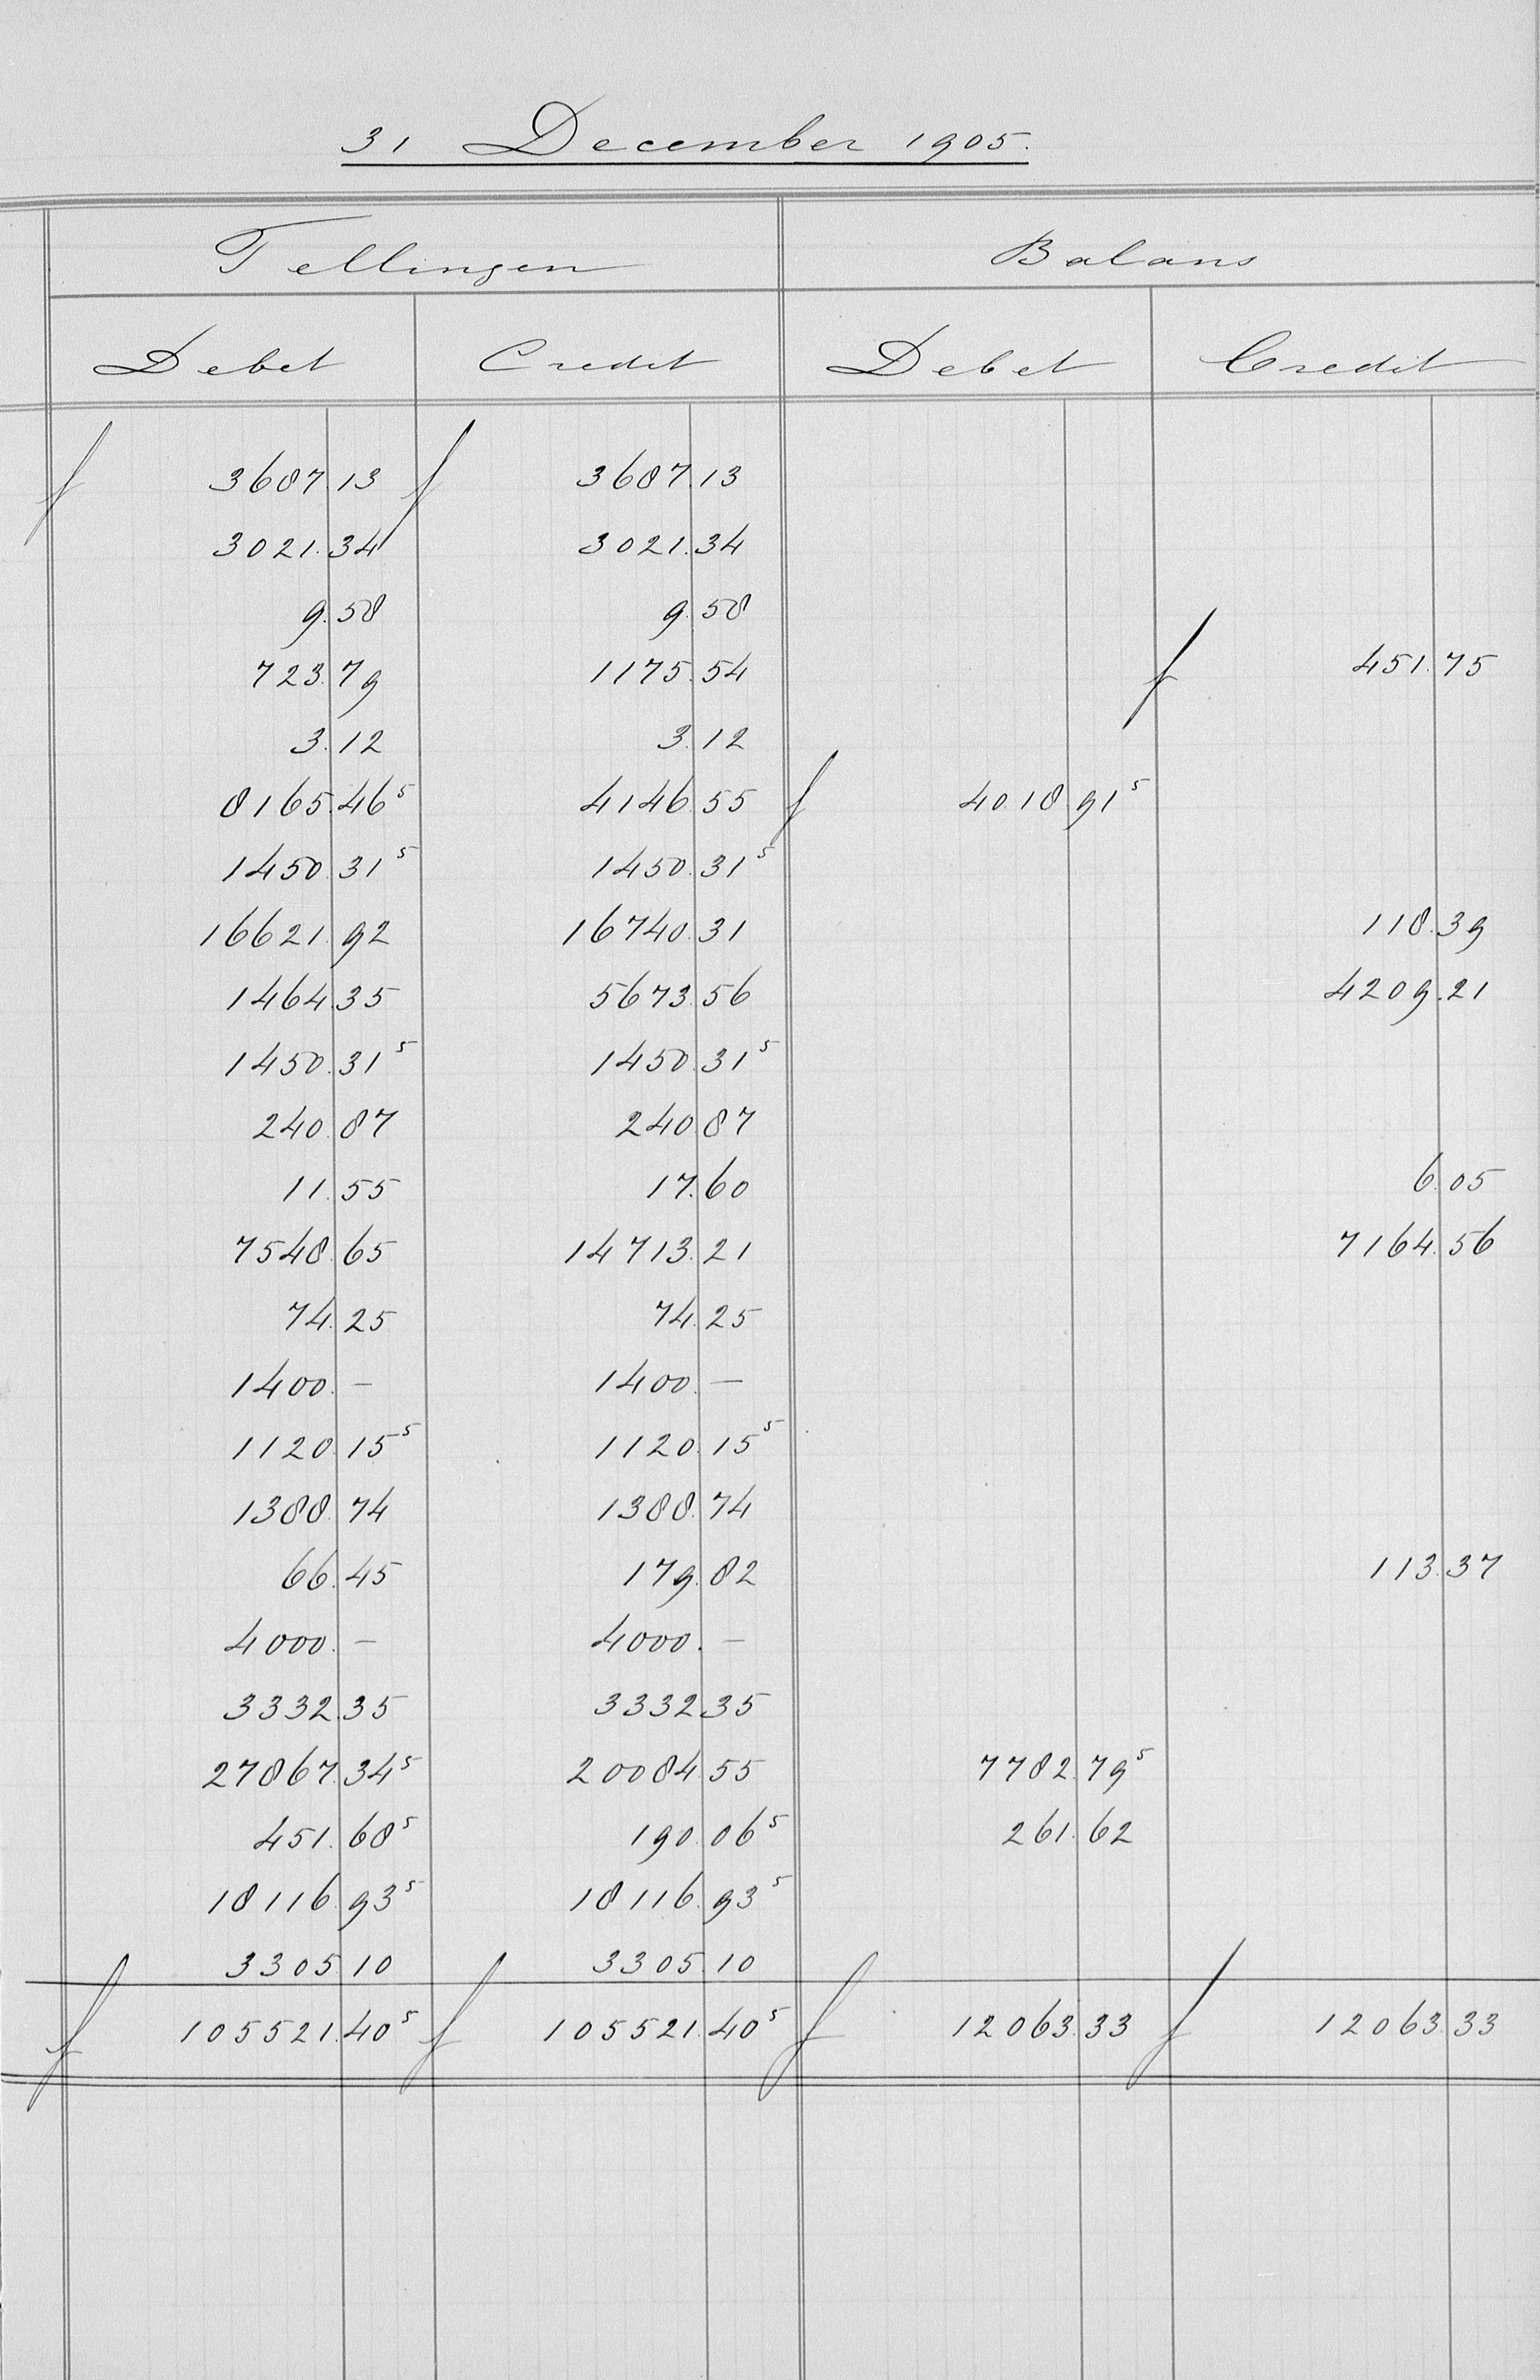 31 December 1905.
Tellingen Balans
Debet Credit Debet Credit
f 3687.13 f 3687.13
3021.34 3021.34
9.58 9.58
723.79 1175.54 f 451.75
3.12 3.12
8165.46⁵ 4146.55 f 4018.91⁵
1450.31⁵ 1450.31⁵
16621.92 16740.31 118.39
1464.35 5673.56 4209.21
1450.31⁵ 1450.31⁵
240.87 240.87
11.55 17.60 6.05
7548.65 14713.21 7164.56
74.25 74.25
1400.— 1400.—
1120.15⁵ 1120.15⁵
1388.74 1388.74
66.45 179.82 113.37
4000.— 4000.—
3332.35 3332.35
27867.34⁵ 20084.55 7782.79⁵
451.68⁵ 190.06⁵ 261.62
18116.93⁵ 18116.93⁵
3305.10 3305.10
f 105521.40⁵ f 105521.40⁵ f 12063.33 f 12063.33